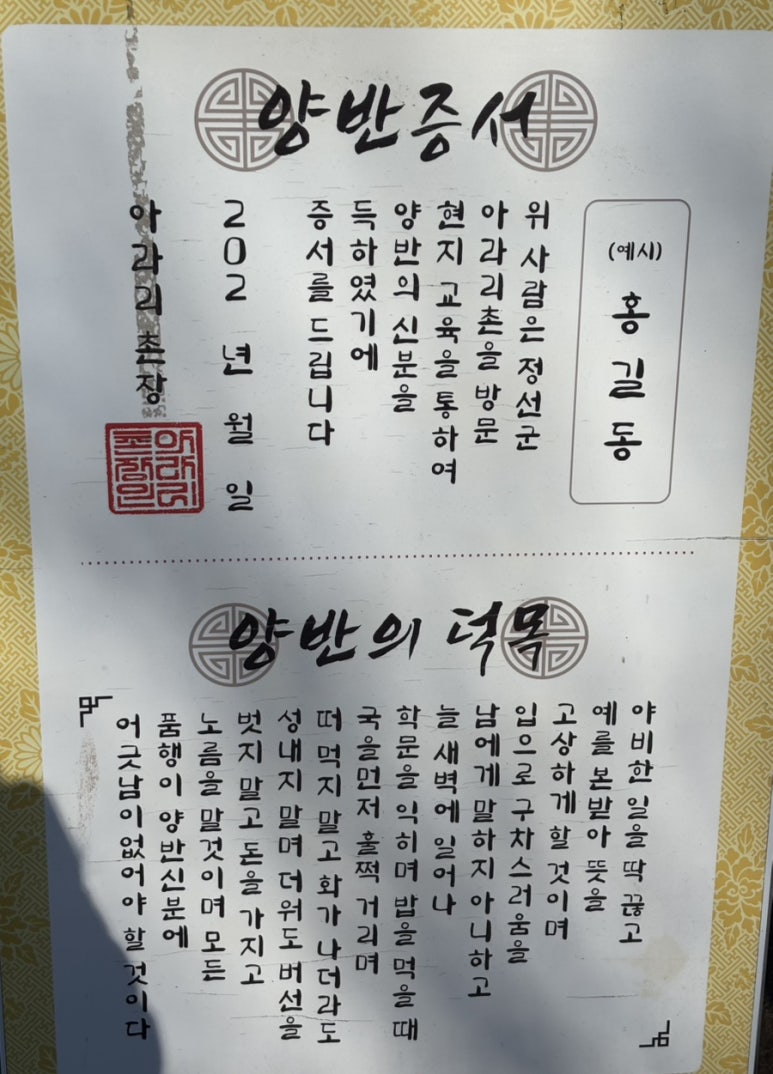 양반증서
(예시)
홍길동
위 사람은 정선군
아라리촌을 방문
현지 교육을 통하여
양반의 신분을
득하였기에
증서를 드립니다
202 년 월 일
아라리촌장
아라리
촌장인
양반의 덕목
야비한 일을 딱 끊고
예를 본받아 뜻을
고상하게 할 것이며
입으로 구차스러움을
남에게 말하지 아니하고
늘 새벽에 일어나
학문을 익히며 밥을 먹을때
국을먼저 훌쩍 거리며
떠 먹지 말고 화가 나더라도
성내지 말며 더워도 버선을
벗지 말고 돈을 가지고
노름을 말것이며 모든
품행이 양반신분에
어긋남이없어야 할 것이다